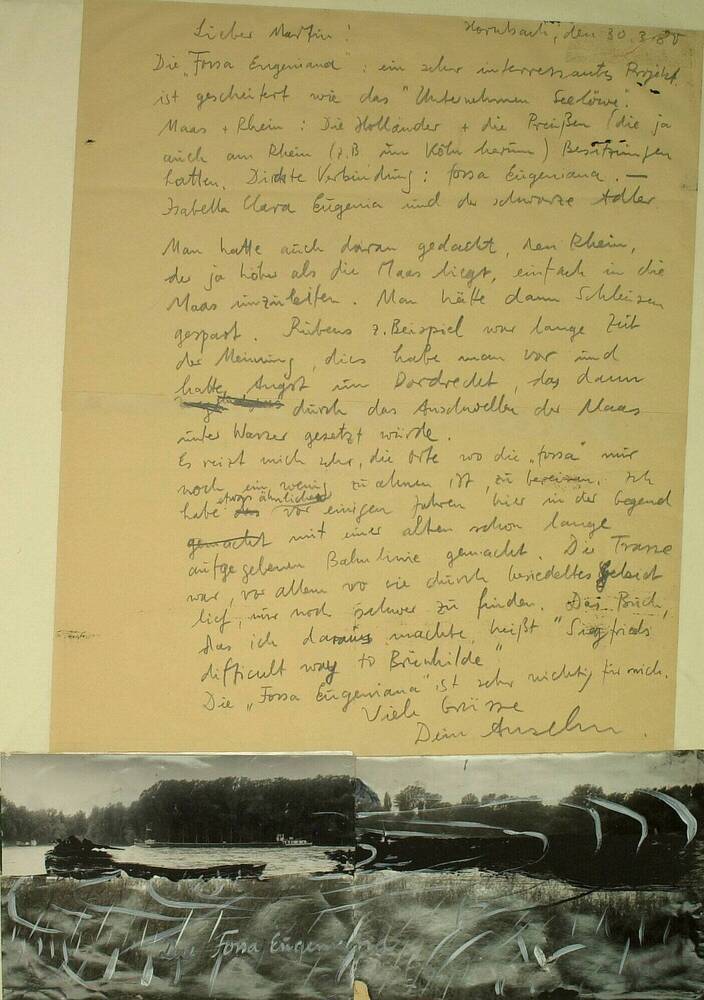 Lieber Martin! Hornbach, den 30.3.
Die „Fossa Eugeniana": ein sehr interressantes Projekt.
ist gescheitert wie das "Unternehmen Seelöwe".
Maas + Rhein: Die Holländer + die Preußen (die ja
auch am Rhein (z.B um Köln herum) Besitzungen
hatten. Direkte Verbindung: fossa Eugeniana. —
Isabella Clara Eugenia und der schwarze Adler
Man hatte auch daran gedacht, den Rhein,
der ja höher als die Maas liegt, einfach in die
Maas umzuleiten. Man hätte dann Schleusen
gespart. Rubens z.Beispiel war lange Zeit
der Meinung, dies habe man vor und
hatte Angst um Dordrecht, das dann
durch das Anschwellen der Maas
unter Wasser gesetzt würde.
Es reizt mich sehr, die Orte wo die „fossa" nur
noch ein wenig zu ahnen ist, zu bereisen. Ich
habe etwas ähnliches vor einigen Jahren hier in der Gegend
gemacht mit einer alten schon lange
aufgegebenen Bahnlinie gemacht. Die Trasse
war, vor allem wo sie durch besiedeltes Gebiet
lief, nur noch schwer zu finden. Das Buch,
das ich daraus machte, heißt "Siegfrieds
difficult way to Brünhilde"
Die „Fossa Eugeniana" ist sehr wichtig für mich.
Viele Grüsse
Dein Anselm.
Fossa Eugeniana